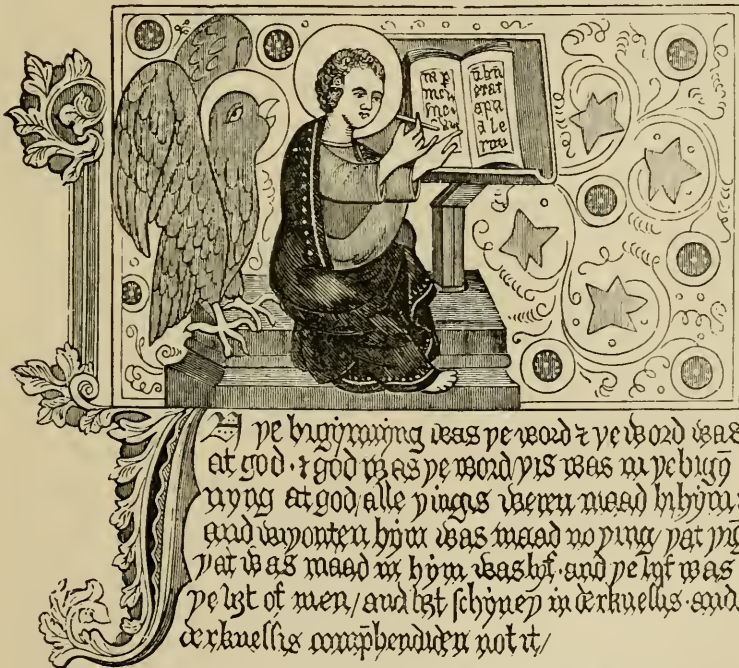 erat
apu
IN ye bigynnyng was ye word ⁊ ye word was
at god · ⁊ god was ye word/ yis was in ye bigyn̄
nyng at god/ alle yingis weren maad bi hym:
and wiyouten hym was maad no ying/ yat ying
yat was maad in hym was lyf · and ye lyf was
ye liȝt of men/ and liȝt schyney in derknessis · and
derknessis comp̄hendiden not it/